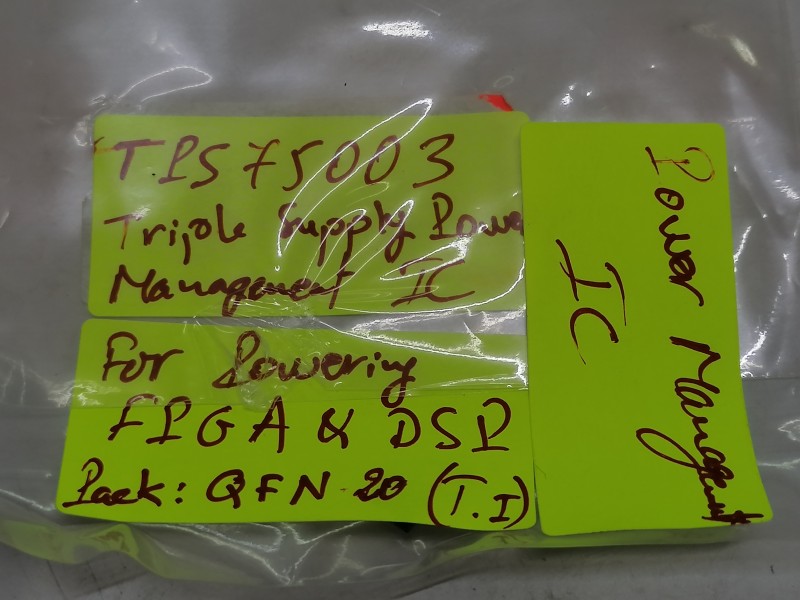 TPS75003
Triple Supply Power
Management IC
For Powering
FPGA & DSP
Pack: QFN-20 (T.I)
Power Management
IC